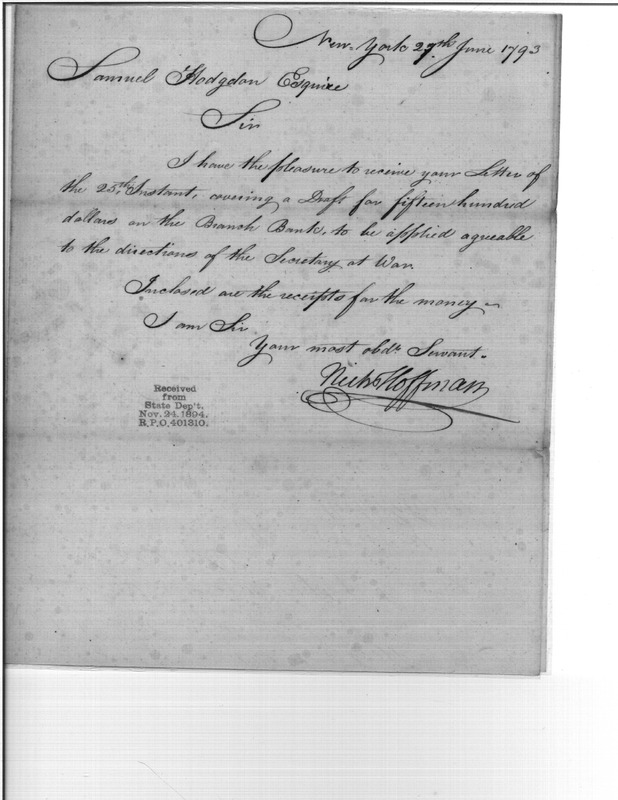 New-York 27th June 1793
Samuel Hodgdon Esquire
Sir
I have the pleasure to receive your Letter of
the 25th Instant, covering a Draft for fifteen hundred
dollars on the Branch Bank, to be applied agreable
to the directions of the Secretary at War.
Inclosed are the receipts for the money
I am Sir
Your most obdt Servant.
Nichs Hoffman
Received
from
State Dep't.
Nov. 24. 1894.
R.P.O. 401310.